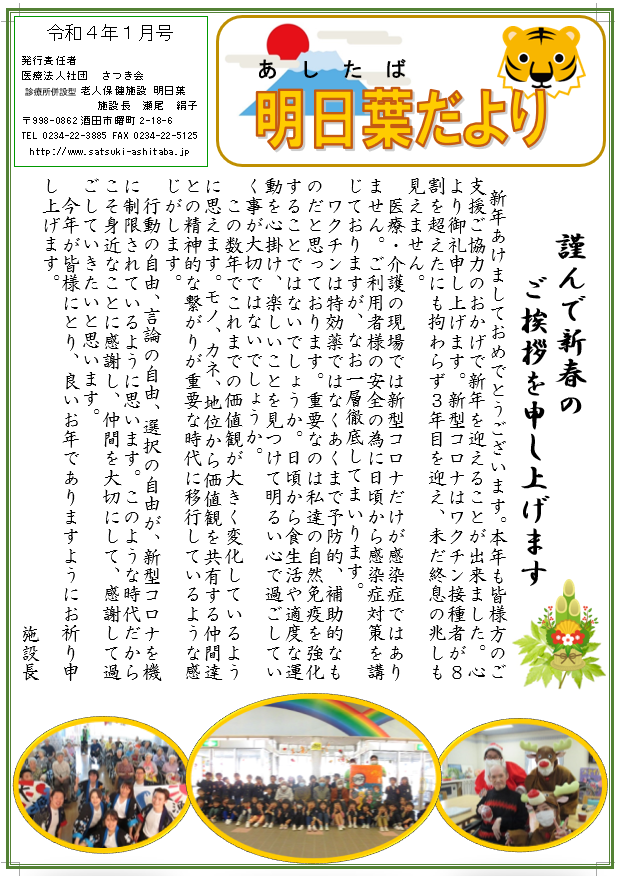 令和４年１月号
発行責任者
医療法人社団　さつき会
診療所併設型 老人保健施設 明日葉
施設長　瀬尾　絹子
〒998-0862 酒田市曙町 2-18-6
TEL 0234-22-3885 FAX 0234-22-5125
http://www.satsuki-ashitaba.jp
あしたば
明日葉だより
謹んで新春の
ご挨拶を申し上げます
新年あけましておめでとうございます。本年も皆様方のご
支援ご協力のおかげで新年を迎えることが出来ました。心
より御礼申し上げます。新型コロナはワクチン接種者が８
割を超えたにも拘わらず３年目を迎え、未だ終息の兆しも
見えません。
医療・介護の現場では新型コロナだけが感染症ではあり
ません。ご利用者様の安全の為に日頃から感染症対策を講
じておりますが、なお一層徹底してまいります。
ワクチンは特効薬ではなくあくまで予防的、補助的なも
のだと思っております。重要なのは私達の自然免疫を強化
することではないでしょうか。日頃から食生活や適度な運
動を心掛け、楽しいことを見つけて明るい心で過ごしてい
く事が大切ではないでしょうか。
この数年でこれまでの価値観が大きく変化しているよう
に思えます。モノ、カネ、地位から価値観を共有する仲間達
との精神的な繋がりが重要な時代に移行しているような感
じがします。
行動の自由、言論の自由、選択の自由が、新型コロナを機
に制限されているように思います。このような時代だから
こそ身近なことに感謝し、仲間を大切にして、感謝して過
ごしていきたいと思います。
今年が皆様にとり、良いお年でありますようにお祈り申
し上げます。
施設長